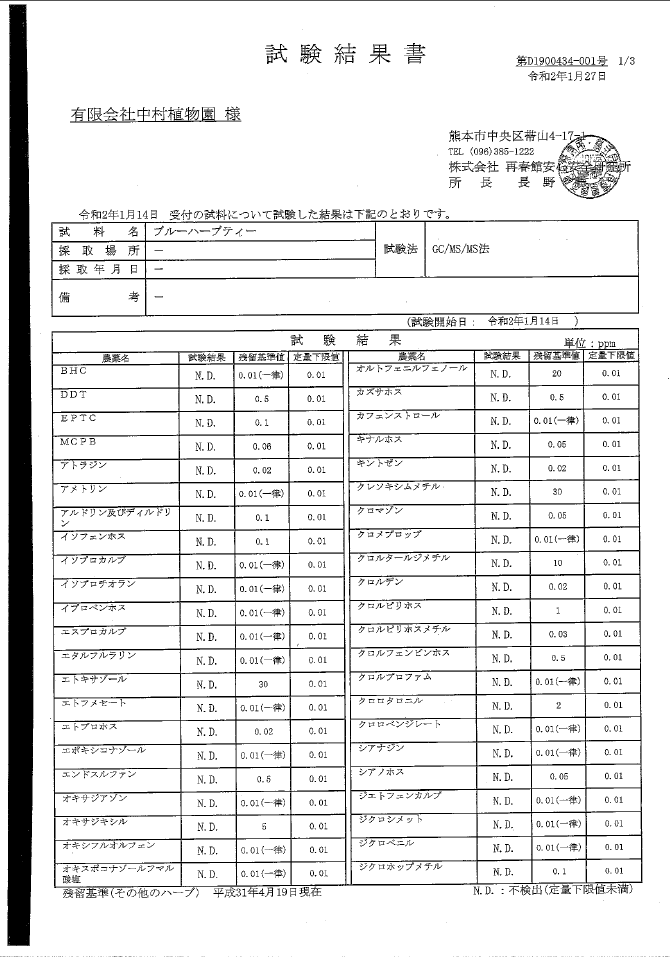 試験結果書
第D1900434-001号 1/3
令和2年1月27日
有限会社中村植物園 様
熊本市中央区帯山4-17-1
TEL (096)385-1222
株式会社 再春館安心安全研究所
所長 長野
令和2年1月14日 受付の試料について試験した結果は下記のとおりです。
試料名 ブルーハーブティー 試験法 GC/MS/MS法
採取場所 －
採取年月日 －
備考 －
(試験開始日: 令和2年1月14日 )
試験結果 単位:ppm
農薬名 試験結果 残留基準値 定量下限値 農薬名 試験結果 残留基準値 定量下限値
BHC N.D. 0.01(一律) 0.01 オルトフェニルフェノール N.D. 20 0.01
DDT N.D. 0.5 0.01 カズサホス N.D. 0.5 0.01
EPTC N.D. 0.1 0.01 カフェンストロール N.D. 0.01(一律) 0.01
MCPB N.D. 0.06 0.01 キナルホス N.D. 0.05 0.01
アトラジン N.D. 0.02 0.01 キントゼン N.D. 0.02 0.01
アメトリン N.D. 0.01(一律) 0.01 クレソキシムメチル N.D. 30 0.01
アルドリン及びディルドリン N.D. 0.1 0.01 クロマゾン N.D. 0.05 0.01
イソフェンホス N.D. 0.1 0.01 クロメプロップ N.D. 0.01(一律) 0.01
イソプロカルブ N.D. 0.01(一律) 0.01 クロルタールジメチル N.D. 10 0.01
イソプロチオラン N.D. 0.01(一律) 0.01 クロルデン N.D. 0.02 0.01
イプロベンホス N.D. 0.01(一律) 0.01 クロルピリホス N.D. 1 0.01
エスプロカルブ N.D. 0.01(一律) 0.01 クロルピリホスメチル N.D. 0.03 0.01
エタルフルラリン N.D. 0.01(一律) 0.01 クロルフェンビンホス N.D. 0.5 0.01
エトキサゾール N.D. 30 0.01 クロルプロファム N.D. 0.01(一律) 0.01
エトフメセート N.D. 0.01(一律) 0.01 クロロタロニル N.D. 2 0.01
エトプロホス N.D. 0.02 0.01 クロロベンジレート N.D. 0.01(一律) 0.01
エポキシコナゾール N.D. 0.01(一律) 0.01 シアナジン N.D. 0.01(一律) 0.01
エンドスルファン N.D. 0.5 0.01 シアノホス N.D. 0.05 0.01
オキサジアゾン N.D. 0.01(一律) 0.01 ジエトフェンカルブ N.D. 0.01(一律) 0.01
オキサジキシル N.D. 5 0.01 ジクロシメット N.D. 0.01(一律) 0.01
オキシフルオルフェン N.D. 0.01(一律) 0.01 ジクロベニル N.D. 0.01(一律) 0.01
オキスポコナゾールフマル酸塩 N.D. 0.01(一律) 0.01 ジクロホップメチル N.D. 0.1 0.01
残留基準(その他のハーブ) 平成31年4月19日現在 N.D.:不検出(定量下限値未満)